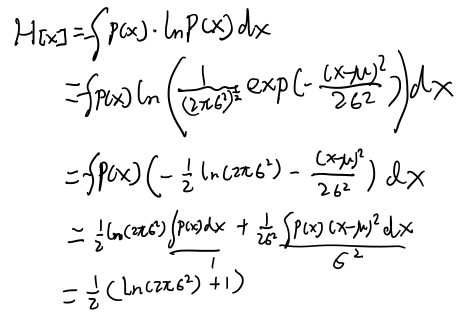 H[x] = -∫ p(x) · ln p(x) dx
= -∫ p(x) ln ( 1/(2πσ²)^{1/2} exp(-(x-μ)²/2σ²) ) dx
= -∫ p(x) ( -1/2 ln(2πσ²) - (x-μ)²/2σ² ) dx
= 1/2 ln(2πσ²) ∫ p(x) dx + 1/2σ² ∫ p(x) (x-μ)² dx
1 σ²
= 1/2 ( ln(2πσ²) + 1 )